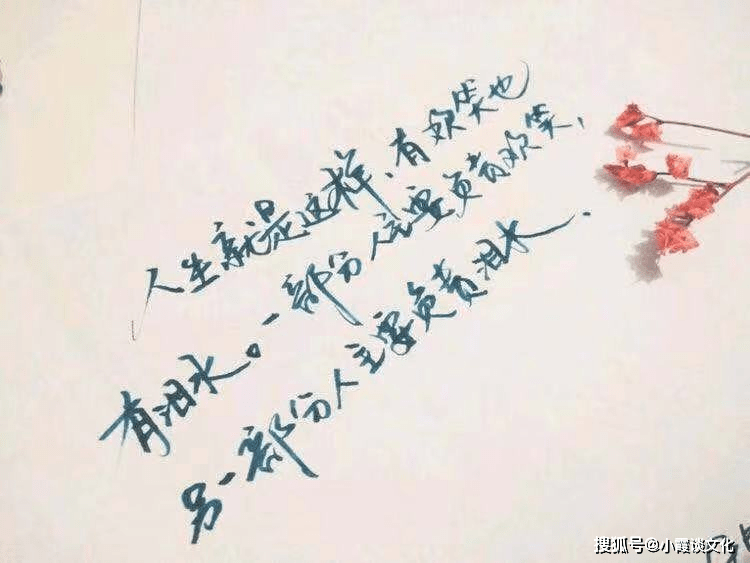 人生就是这样,有欢笑也
有泪水。一部分人主要负责欢笑,
另一部分人主要负责泪水.
搜狐号@小霞谈文化